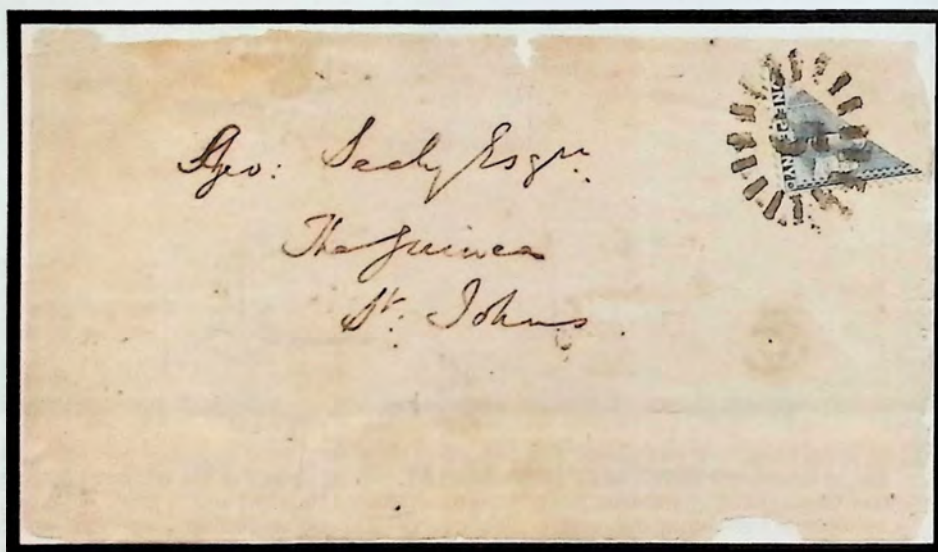 Geo: Sealy Esqr.
The Guinea
St. Johns.